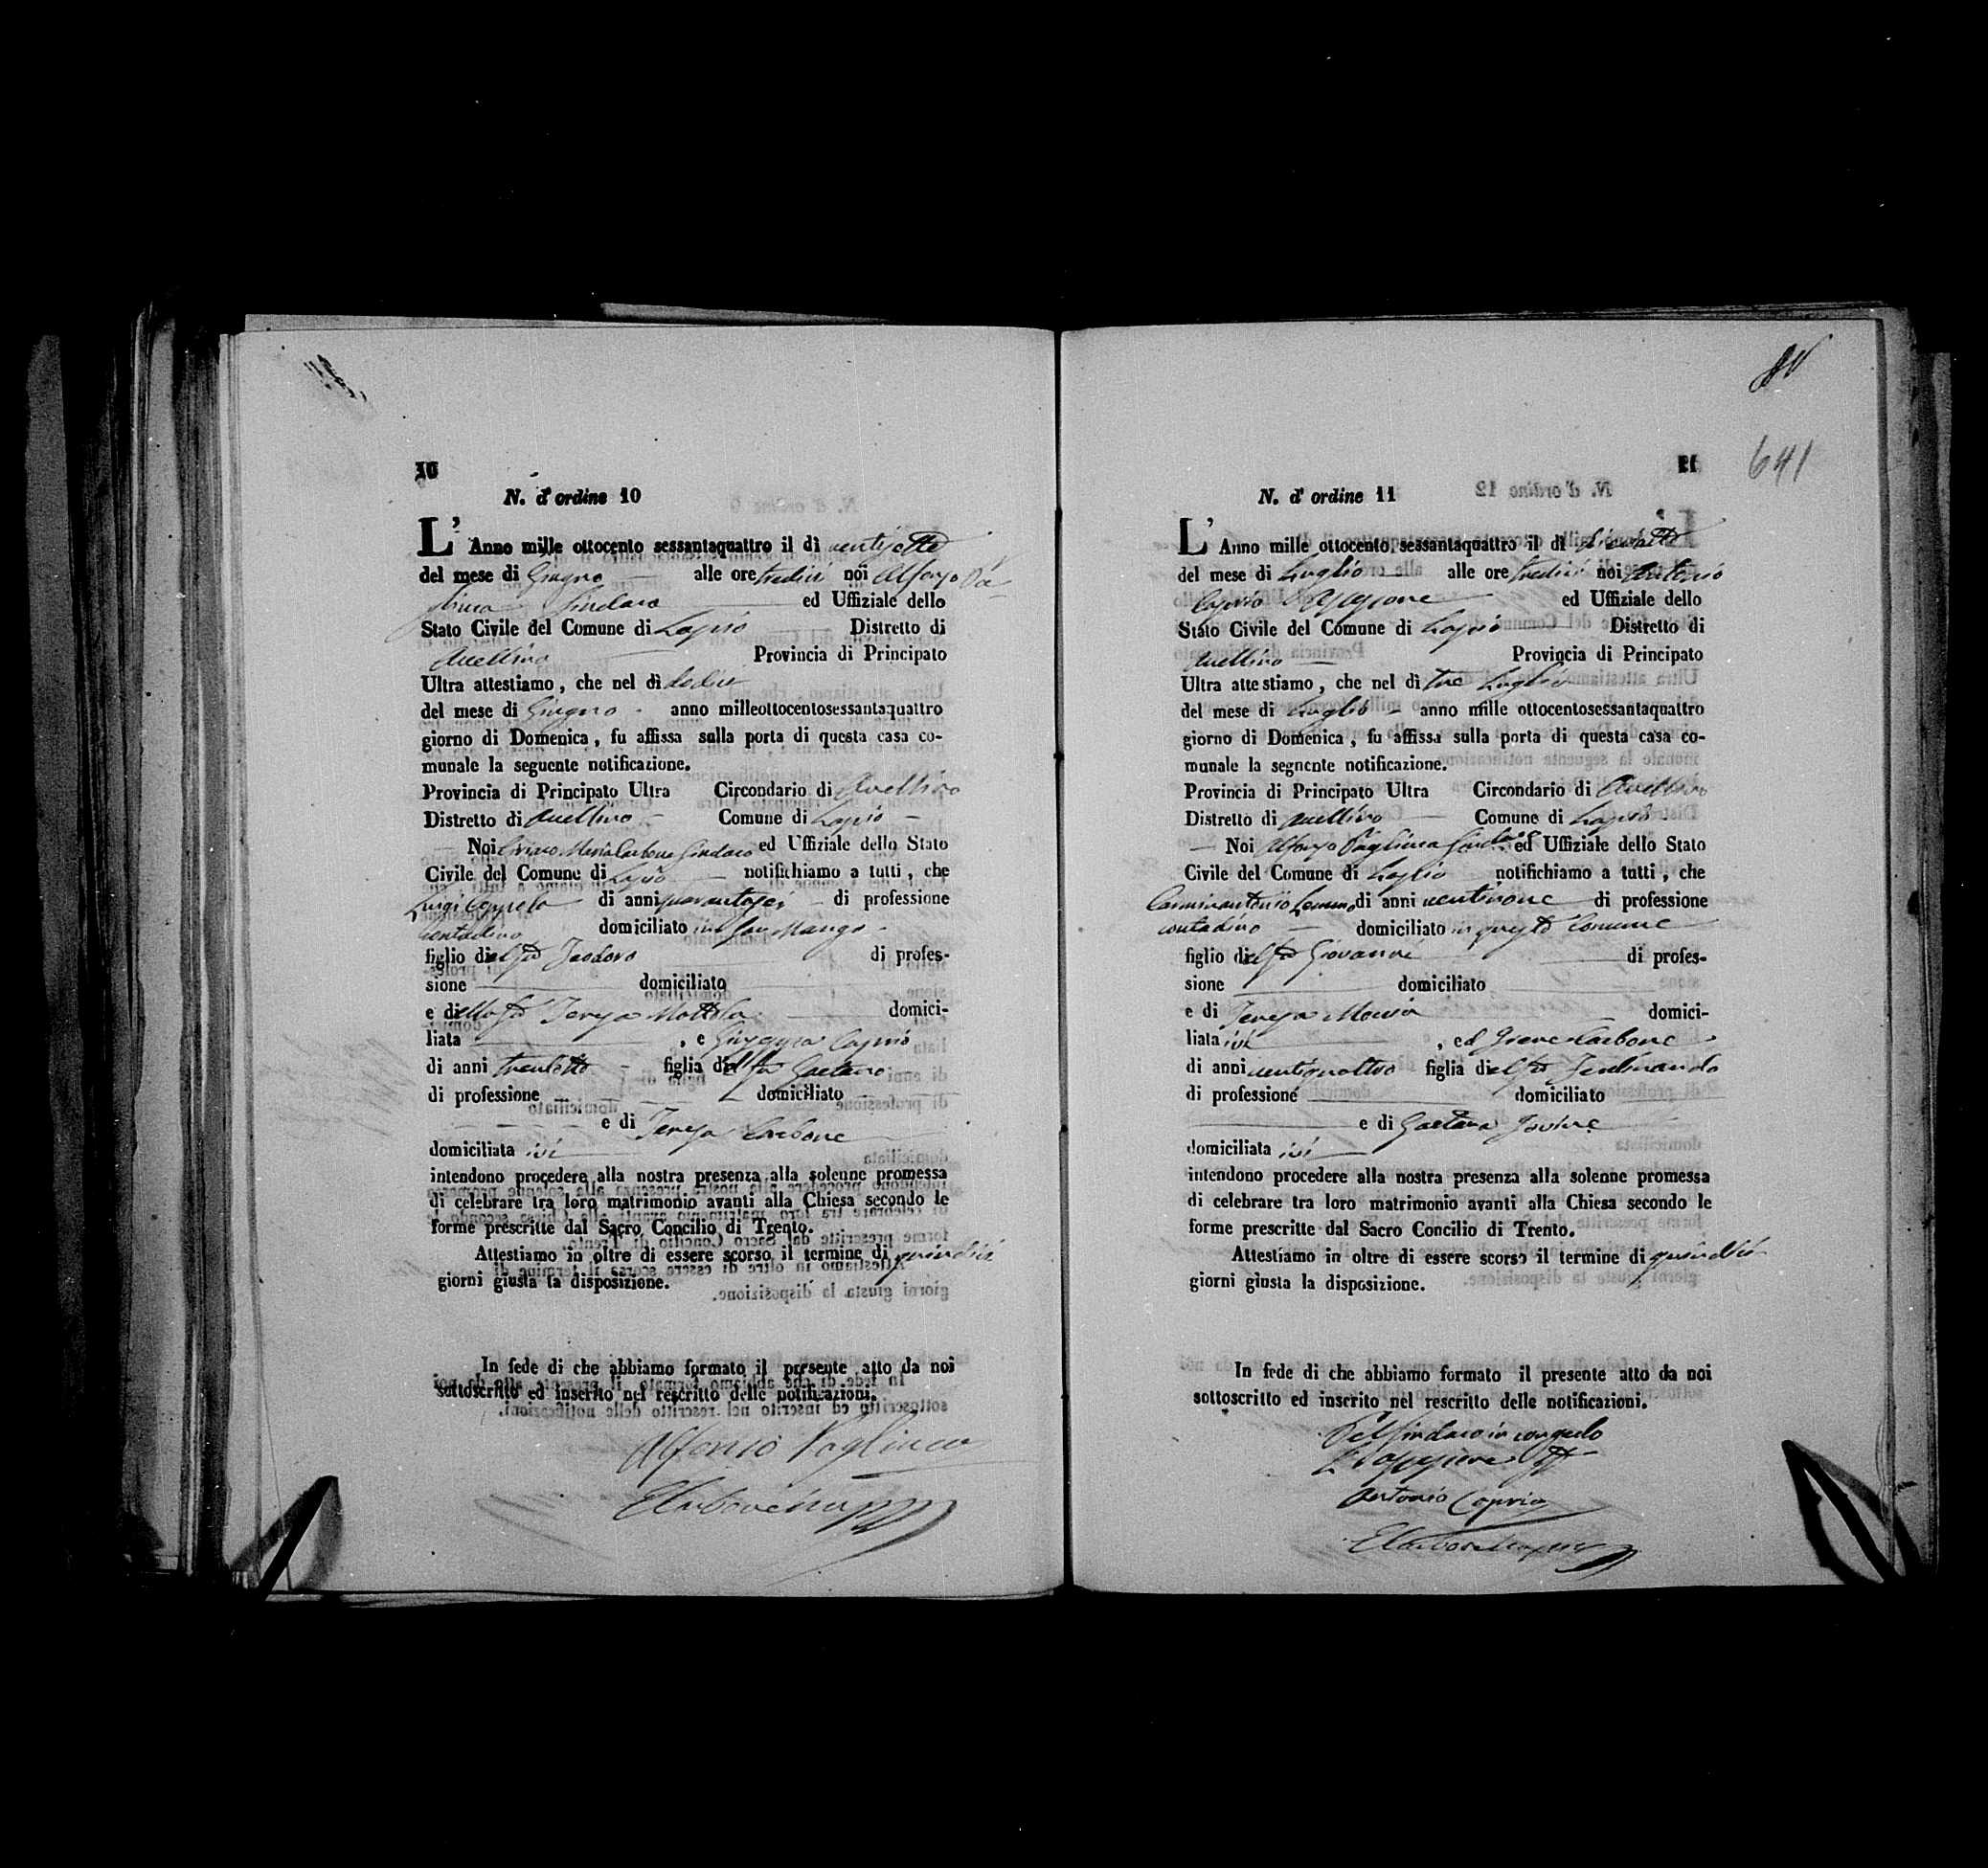 10
N. d'ordine 10
L'Anno mille ottocento sessantaquattro il dì ventisette
del mese di Giugno alle ore tredici noi Alfonzo Pa-
gliuca Sindaco ed Uffiziale dello
Stato Civile del Comune di Lapio Distretto di
Avellino Provincia di Principato
Ultra attestiamo, che nel dì dodici
del mese di Giugno anno milleottocentosessantaquattro
giorno di Domenica, fu affissa sulla porta di questa casa co-
munale la seguente notificazione.
Provincia di Principato Ultra Circondario di Avellino
Distretto di Avellino Comune di Lapio
Noi Maria Carbone Sindaco ed Uffiziale dello Stato
Civile del Comune di Lapio notifichiamo a tutti, che
Luigi di anni quarantasei di professione
contadino domiciliato in San Mango
figlio del fu Teodoro di profes-
sione domiciliato
e della fu Teresa Mottola domici-
liata , e Giuseppa Caprio
di anni trentotto figlia del fu Gaetano
di professione domiciliato
e di Teresa Carbone
domiciliata ivi
intendono procedere alla nostra presenza alla solenne promessa
di celebrare tra loro matrimonio avanti alla Chiesa secondo le
forme prescritte dal Sacro Concilio di Trento.
Attestiamo in oltre di essere scorso il termine di quindici
giorni giusta la disposizione.
In fede di che abbiamo formato il presente atto da noi
sottoscritto ed inserito nel rescritto delle notificazioni.
Alfonzo Pagliuca
641
11
N. d' ordine 11
L'Anno mille ottocento sessantaquattro il dì diciotto
del mese di Luglio alle ore tredici noi Antonio
Caprio ed Uffiziale dello
Stato Civile del Comune di Lapio Distretto di
Avellino Provincia di Principato
Ultra attestiamo, che nel dì tre Luglio
del mese di Luglio anno mille ottocentosessantaquattro
giorno di Domenica, fu affissa sulla porta di questa casa co-
munale la segnente notificazione.
Provincia di Principato Ultra Circondario di Avellino
Distretto di Avellino Comune di Lapio
Noi Alfonzo Pagliuca Sindaco ed Uffiziale dello Stato
Civile del Comune di Lapio notifichiamo a tutti, che
Carminantonio Lemmo di anni ventinove di professione
contadino domiciliato in questo Comune
figlio del fu Giovanni di profes-
sione domiciliato
e di Teresa domici-
liata ivi , ed Irene Carbone
di anni ventiquattro figlia del fu Ferdinando
di professione domiciliato
e di Gaetana Iovine
domiciliata ivi
intendono procedere alla nostra presenza alla solenne promessa
di celebrare tra loro matrimonio avanti alla Chiesa secondo le
forme prescritte dal Sacro Concilio di Trento.
Attestiamo in oltre di essere scorso il termine di quindici
giorni giusta la disposizione.
In fede di che abbiamo formato il presente atto da noi
sottoscritto ed inserito nel rescritto delle notificazioni.
Pel Sindaco in congedo
Antonio Caprio